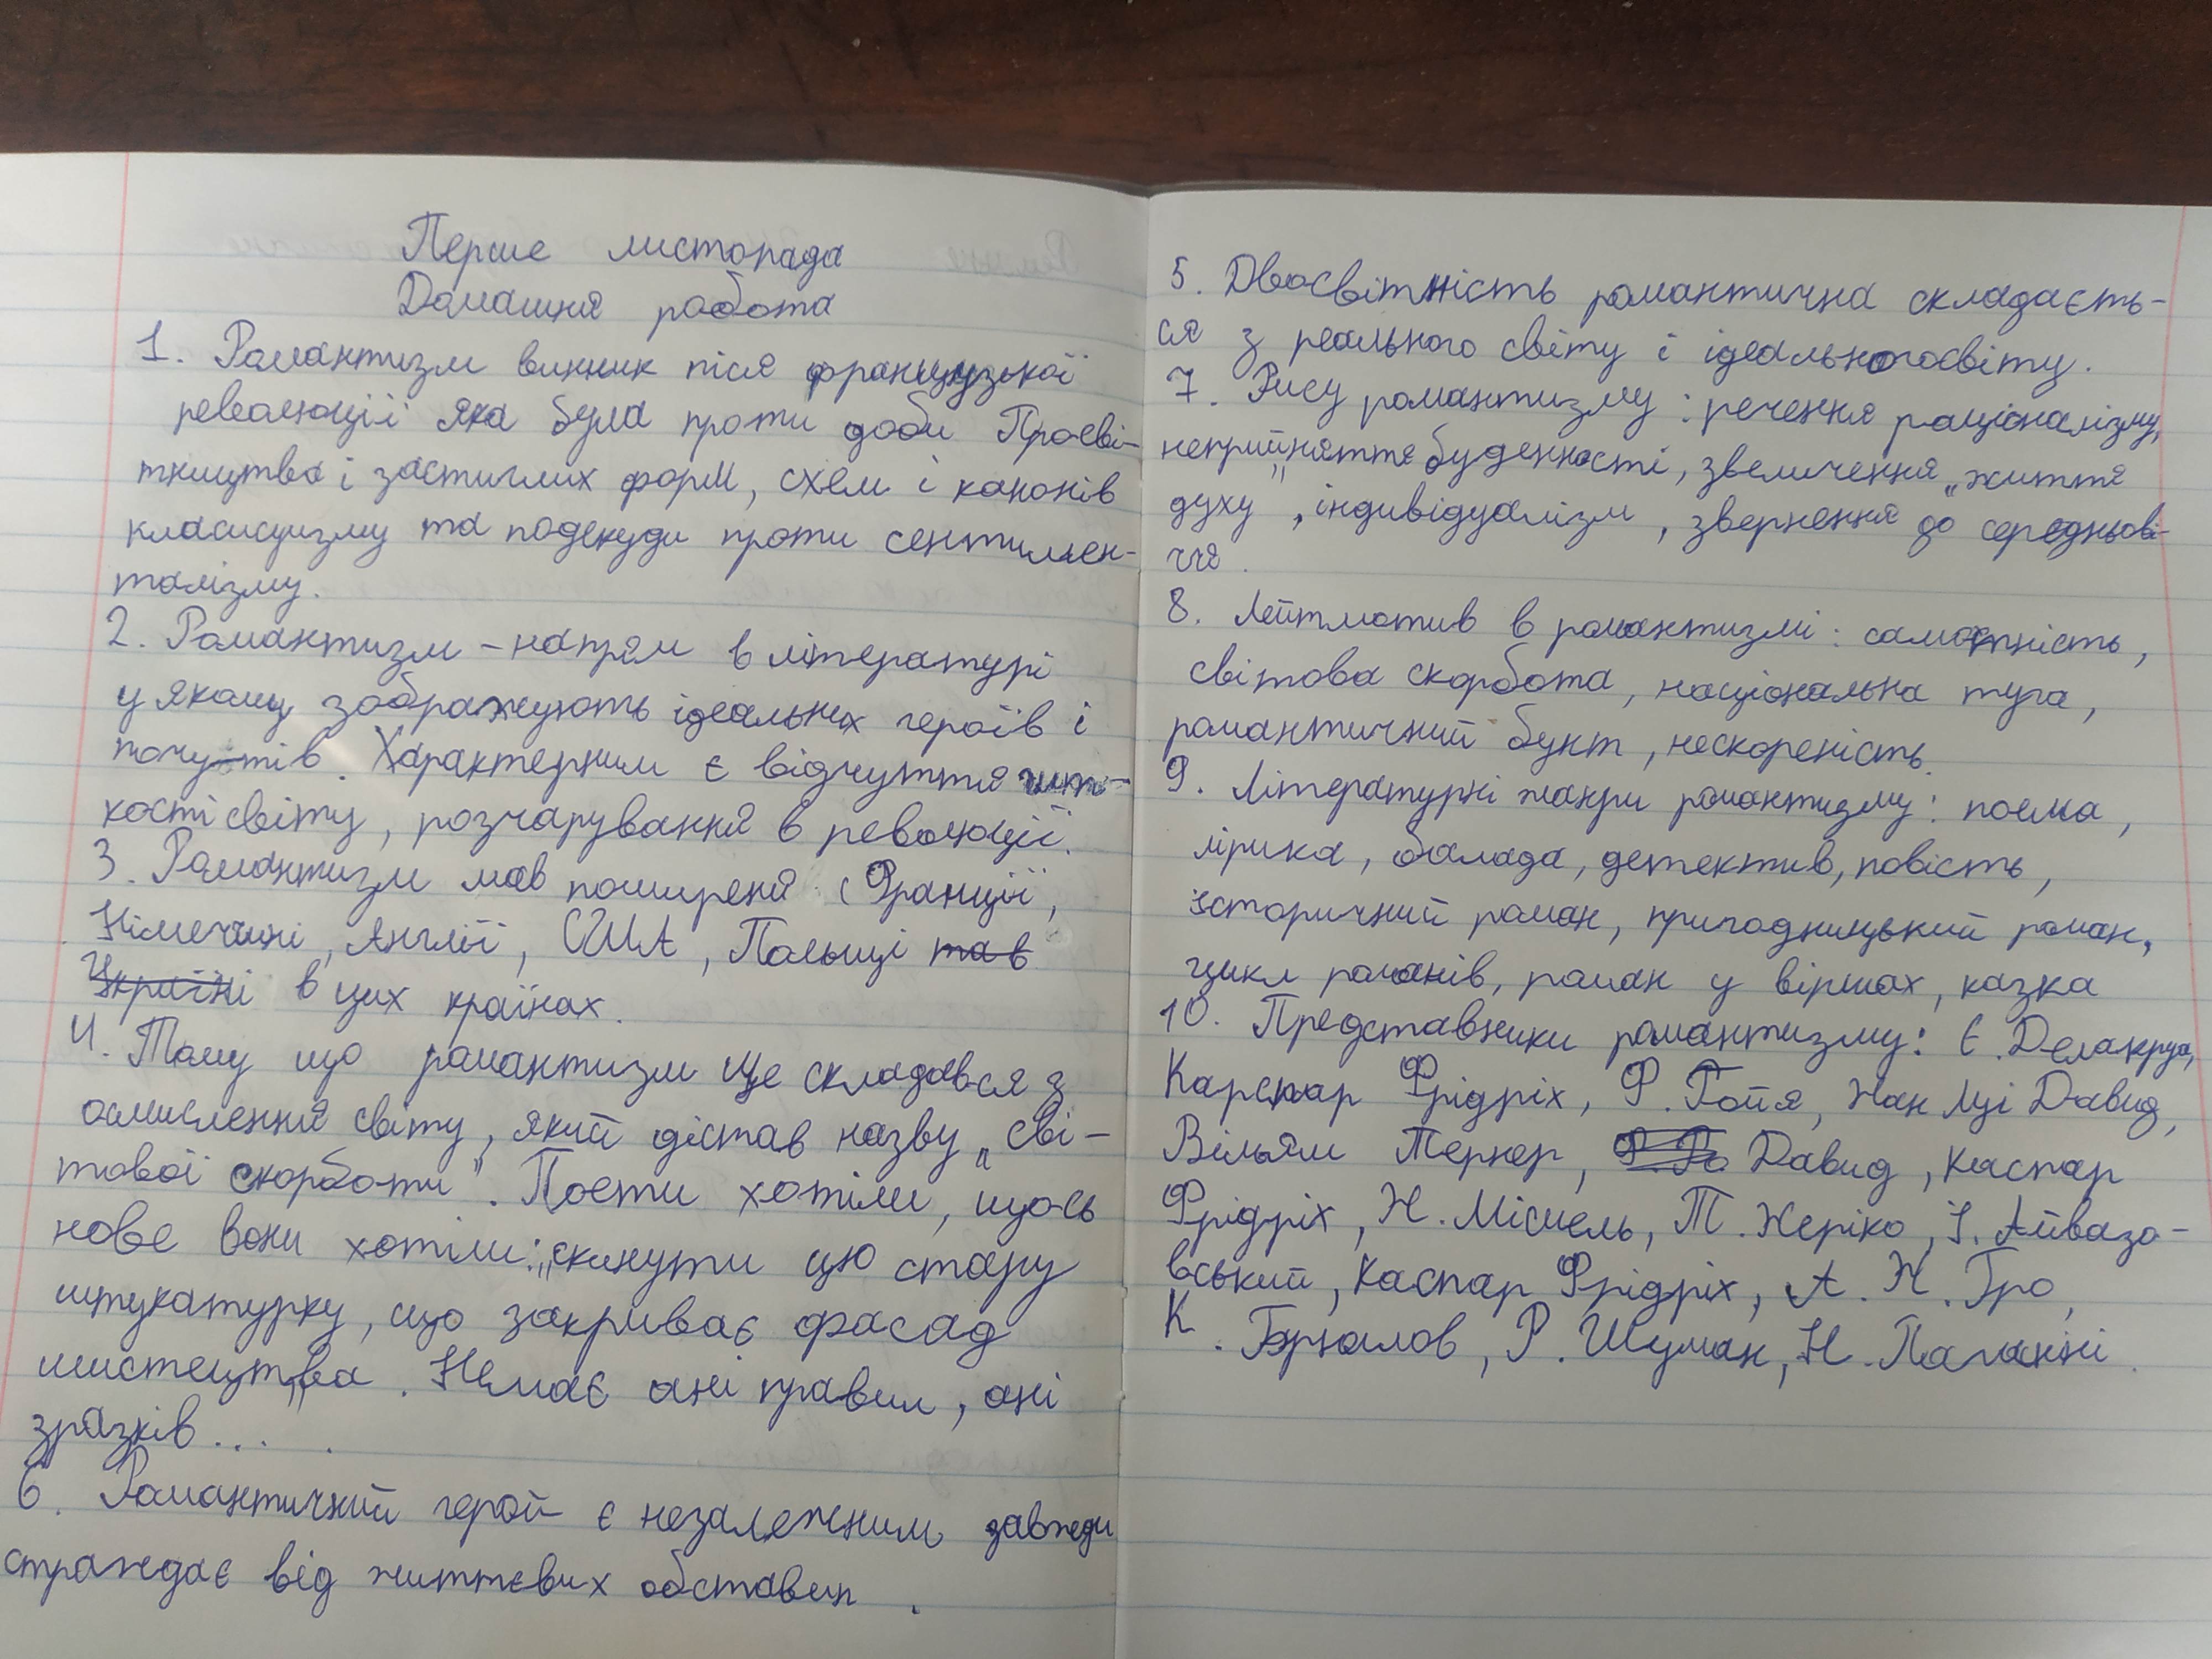 Перше листопада
Домашня робота
1. Романтизм виник після французької
революції яка була проти доби Просві-
тництва і застиглих форм, схем і канонів
класицизму та подекуди проти сентимен-
талізму.
2. Романтизм – напрям в літературі
у якому зображують ідеальних героїв і
почуттів. Характерним є відчуття хит-
кості світу, розчарування в революції.
3. Романтизм мав поширеня: (Франції,
Німеччині, Англії, США, Польщі та в
Україні в цих країнах.
4. Тому що романтизм ще складався з
осмислення світу, який дістав назву „сві-
тової скорботи". Поети хотіли, щось
нове вони хотіли: „скинути цю стару
штукатурку, що закриває фасад
мистецтва. Немає ані правил, ані
зразків...
6. Романтичний герой є незалежним завжди
страждає від життєвих обставин.
5. Двосвітність романтична складаєть-
ся з реального світу і ідеального світу.
7. Рису романтизму: речення раціоналізму,
неприйняття буденності, звеличення „життя
духу", індивідуалізм, звернення до середньові-
ччя.
8. Лейтмотив в романтизмі: самотність,
світова скорбота, національна туга,
романтичний бунт, нескореність.
9. Літературні жанри романтизму: поема,
лірика, балада, детектив, повість,
історичний роман, пригодницький роман,
цикл романів, роман у віршах, казка
10. Представники романтизму: Є. Делакруа,
Карспар Фрідріх, Ф. Гойя, Жан Луі Давид,
Вільям Тернер, Давид, Каспар
Фрідріх, Ж. Мішель, Т. Жеріко, І. Айвазо-
вський, Каспар Фрідріх, А. Ж. Гро,
К. Брюлов, Р. Шуман, Н. Паганіні.